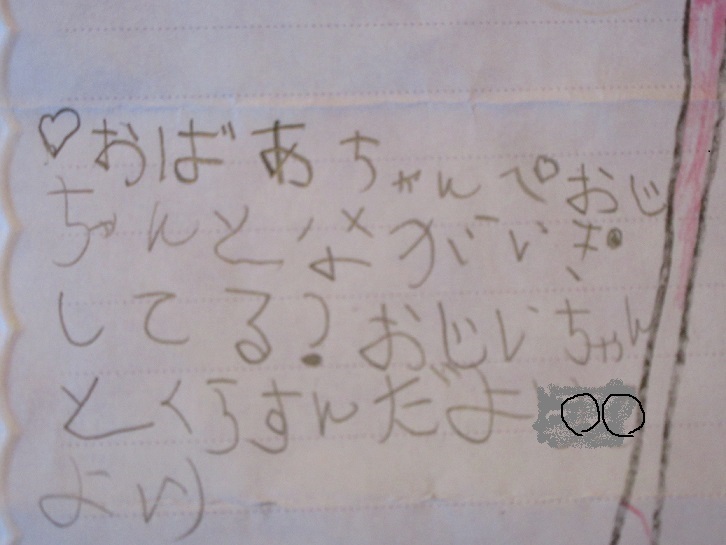 ♡おばあちゃんぺおじ
ちゃんとながいき
してる?おじいちゃん
とくらすんだよ ○○
より